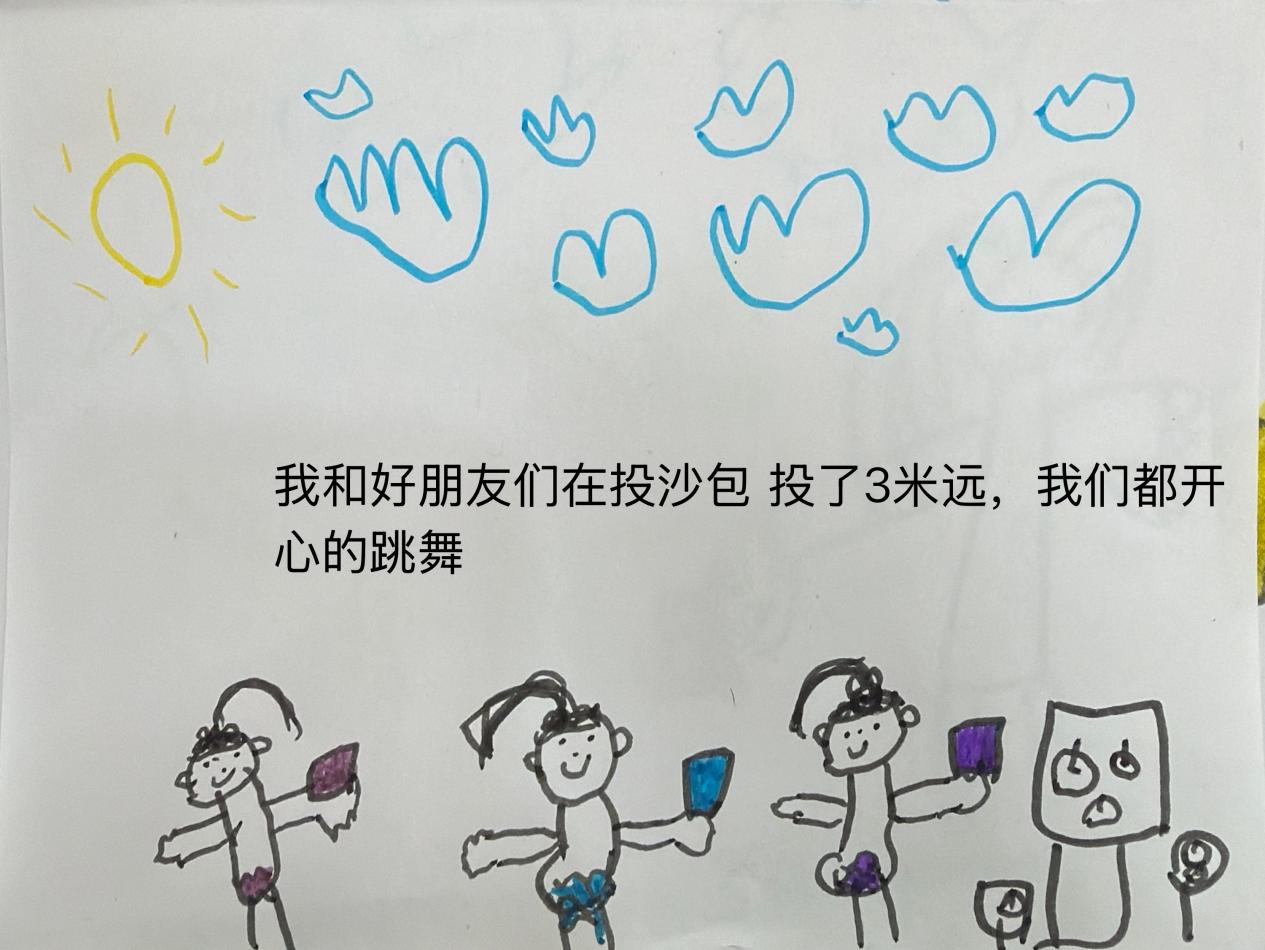 我和好朋友们在投沙包 投了3米远，我们都开
心的跳舞